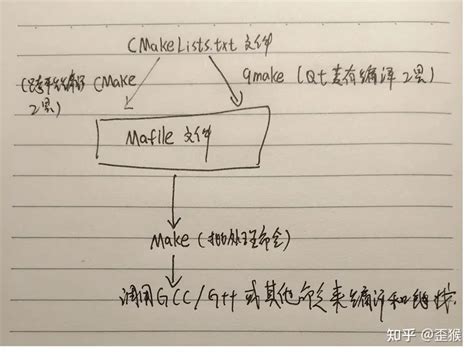 CMakeLists.txt 文件
(跨平台编译工具) CMake
qmake (Qt 专有编译工具)
Mafile 文件
Make (批处理命令)
调用GCC/G++ 或其他命令来编译和链接
知乎 @歪猴